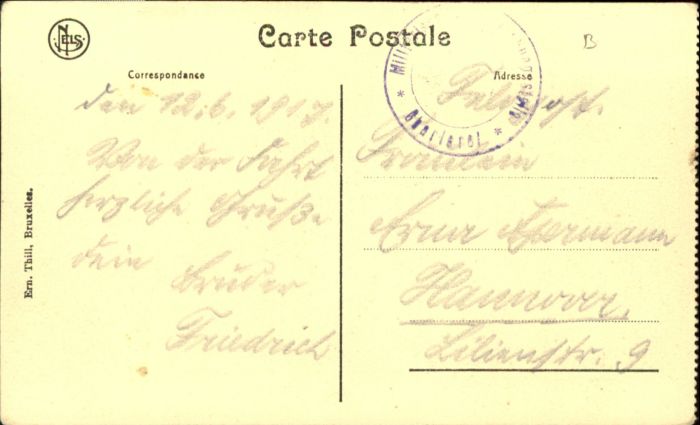 NELS
Carte Postale
B
Correspondance
Adresse
den 12.6.1917.
Von der Fahrt
herzliche Grüße
dein Bruder
Friedrich
Feldpost.
Fräulein
Erna
Hannover,
Lilienstr. 9
Ern. Thill, Bruxelles.